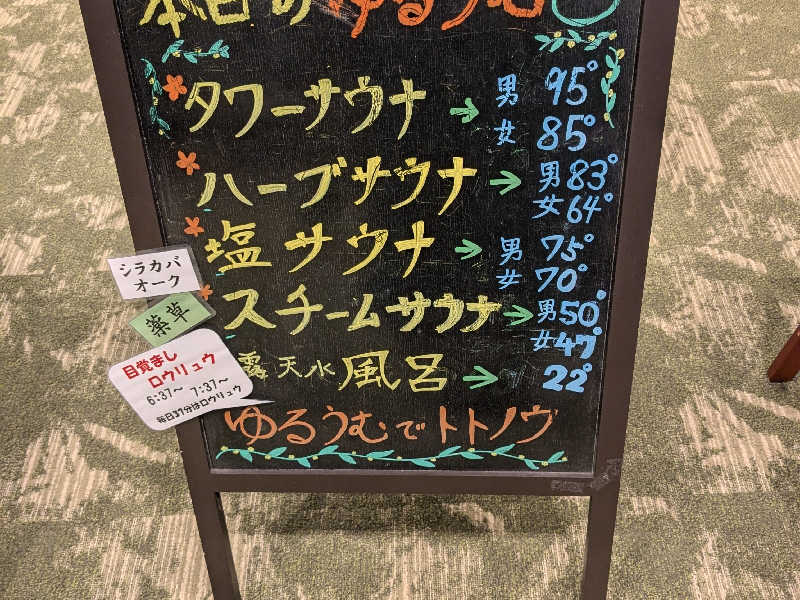 本日のゆるうむ
タワーサウナ → 男 95°
女 85°
ハーブサウナ → 男 83°
女 64°
塩サウナ → 男 75°
女 70°
スチームサウナ → 男 50°
女 47°
露天水風呂 → 22°
ゆるうむでトトノウ
シラカバ
オーク
薬草
目覚まし
ロウリュウ
6:37〜 7:37〜
毎日37分はロウリュウ